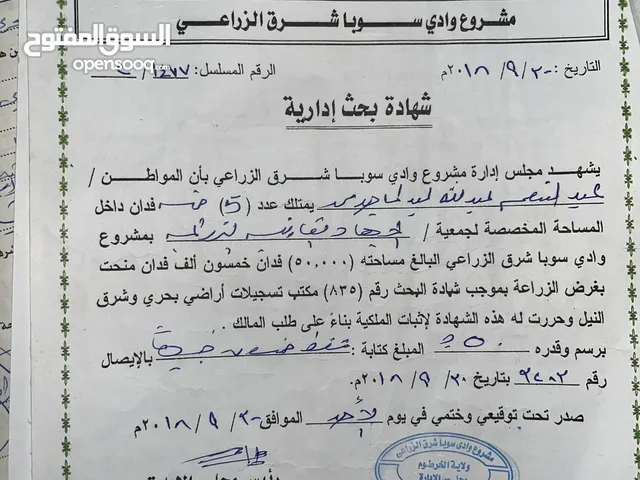 مشروع وادي سوبا شرق الزراعي
السوق المفتوح
opensooq.com
التاريخ : ٣٠ / ٩ / ٢٠١٨م
الرقم المسلسل :
شهادة بحث إدارية
يشهد مجلس إدارة مشروع وادي سوبا شرق الزراعي بأن المواطن /
عبد المنعم عبد الله يمتلك عدد (5) فدان داخل
المساحة المخصصة لجمعية / بمشروع
وادي سوبا شرق الزراعي البالغ مساحته (٥٠,٠٠٠) فدان خمسون ألف فدان منحت
بغرض الزراعة بموجب شهادة البحث رقم (٨٣٥) مكتب تسجيلات أراضي بحري وشرق
النيل وحررت له هذه الشهادة لإثبات الملكية بناءً على طلب المالك .
برسم وقدره ٥٠ المبلغ كتابة : فقط خمسون جنيهاً بالإيصال
رقم بتاريخ ٣٠ / ٩ / ٢٠١٨م.
صدر تحت توقيعي وختمي في يوم الأحد الموافق ٣٠ / ٩ / ٢٠١٨م
مشروع وادي سوبا شرق الزراعي
ولاية الخرطوم
مجلس الإدارة